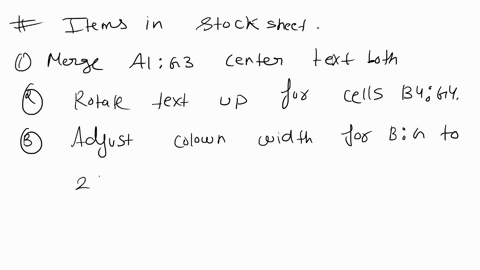 # Items in stock sheet.
① Merge A1:G3 center text both
② Rotate text up for cells B4:G4.
③ Adjust colown width for B:G to
2